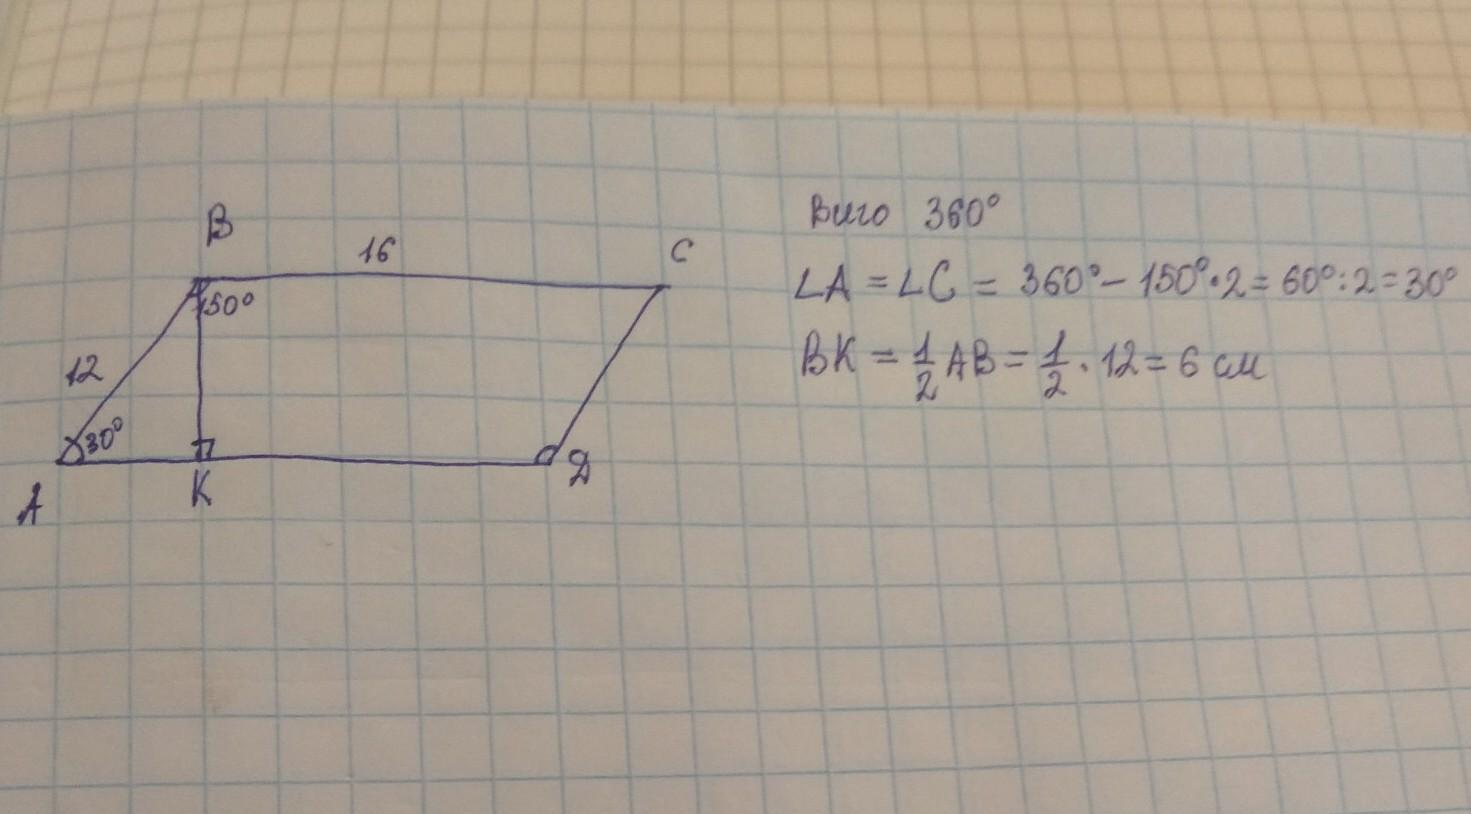 B
16
C
150°
12
30°
A
K
D
Всего 360°
∠A = ∠C = 360° - 150° · 2 = 60° : 2 = 30°
BK = 1/2 AB = 1/2 · 12 = 6 см